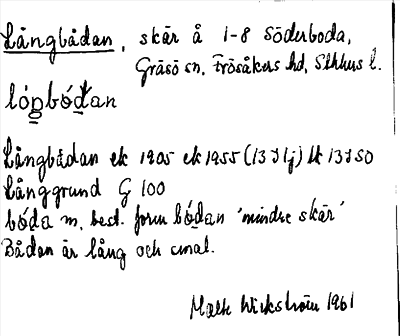 Långbådan, skär å 1-8 Söderboda,
Gräsö sn, Frösåkers hd, Sthlms l.
lóŋbód̲an
Långbådan ek 1905 ek 1955 (13 I 1j) lk 13 I 50
Långgrund G 100
bóda m. best. form bód̲an 'mindre skär'
Bådan är lång och smal.
Mats Wickström 1961